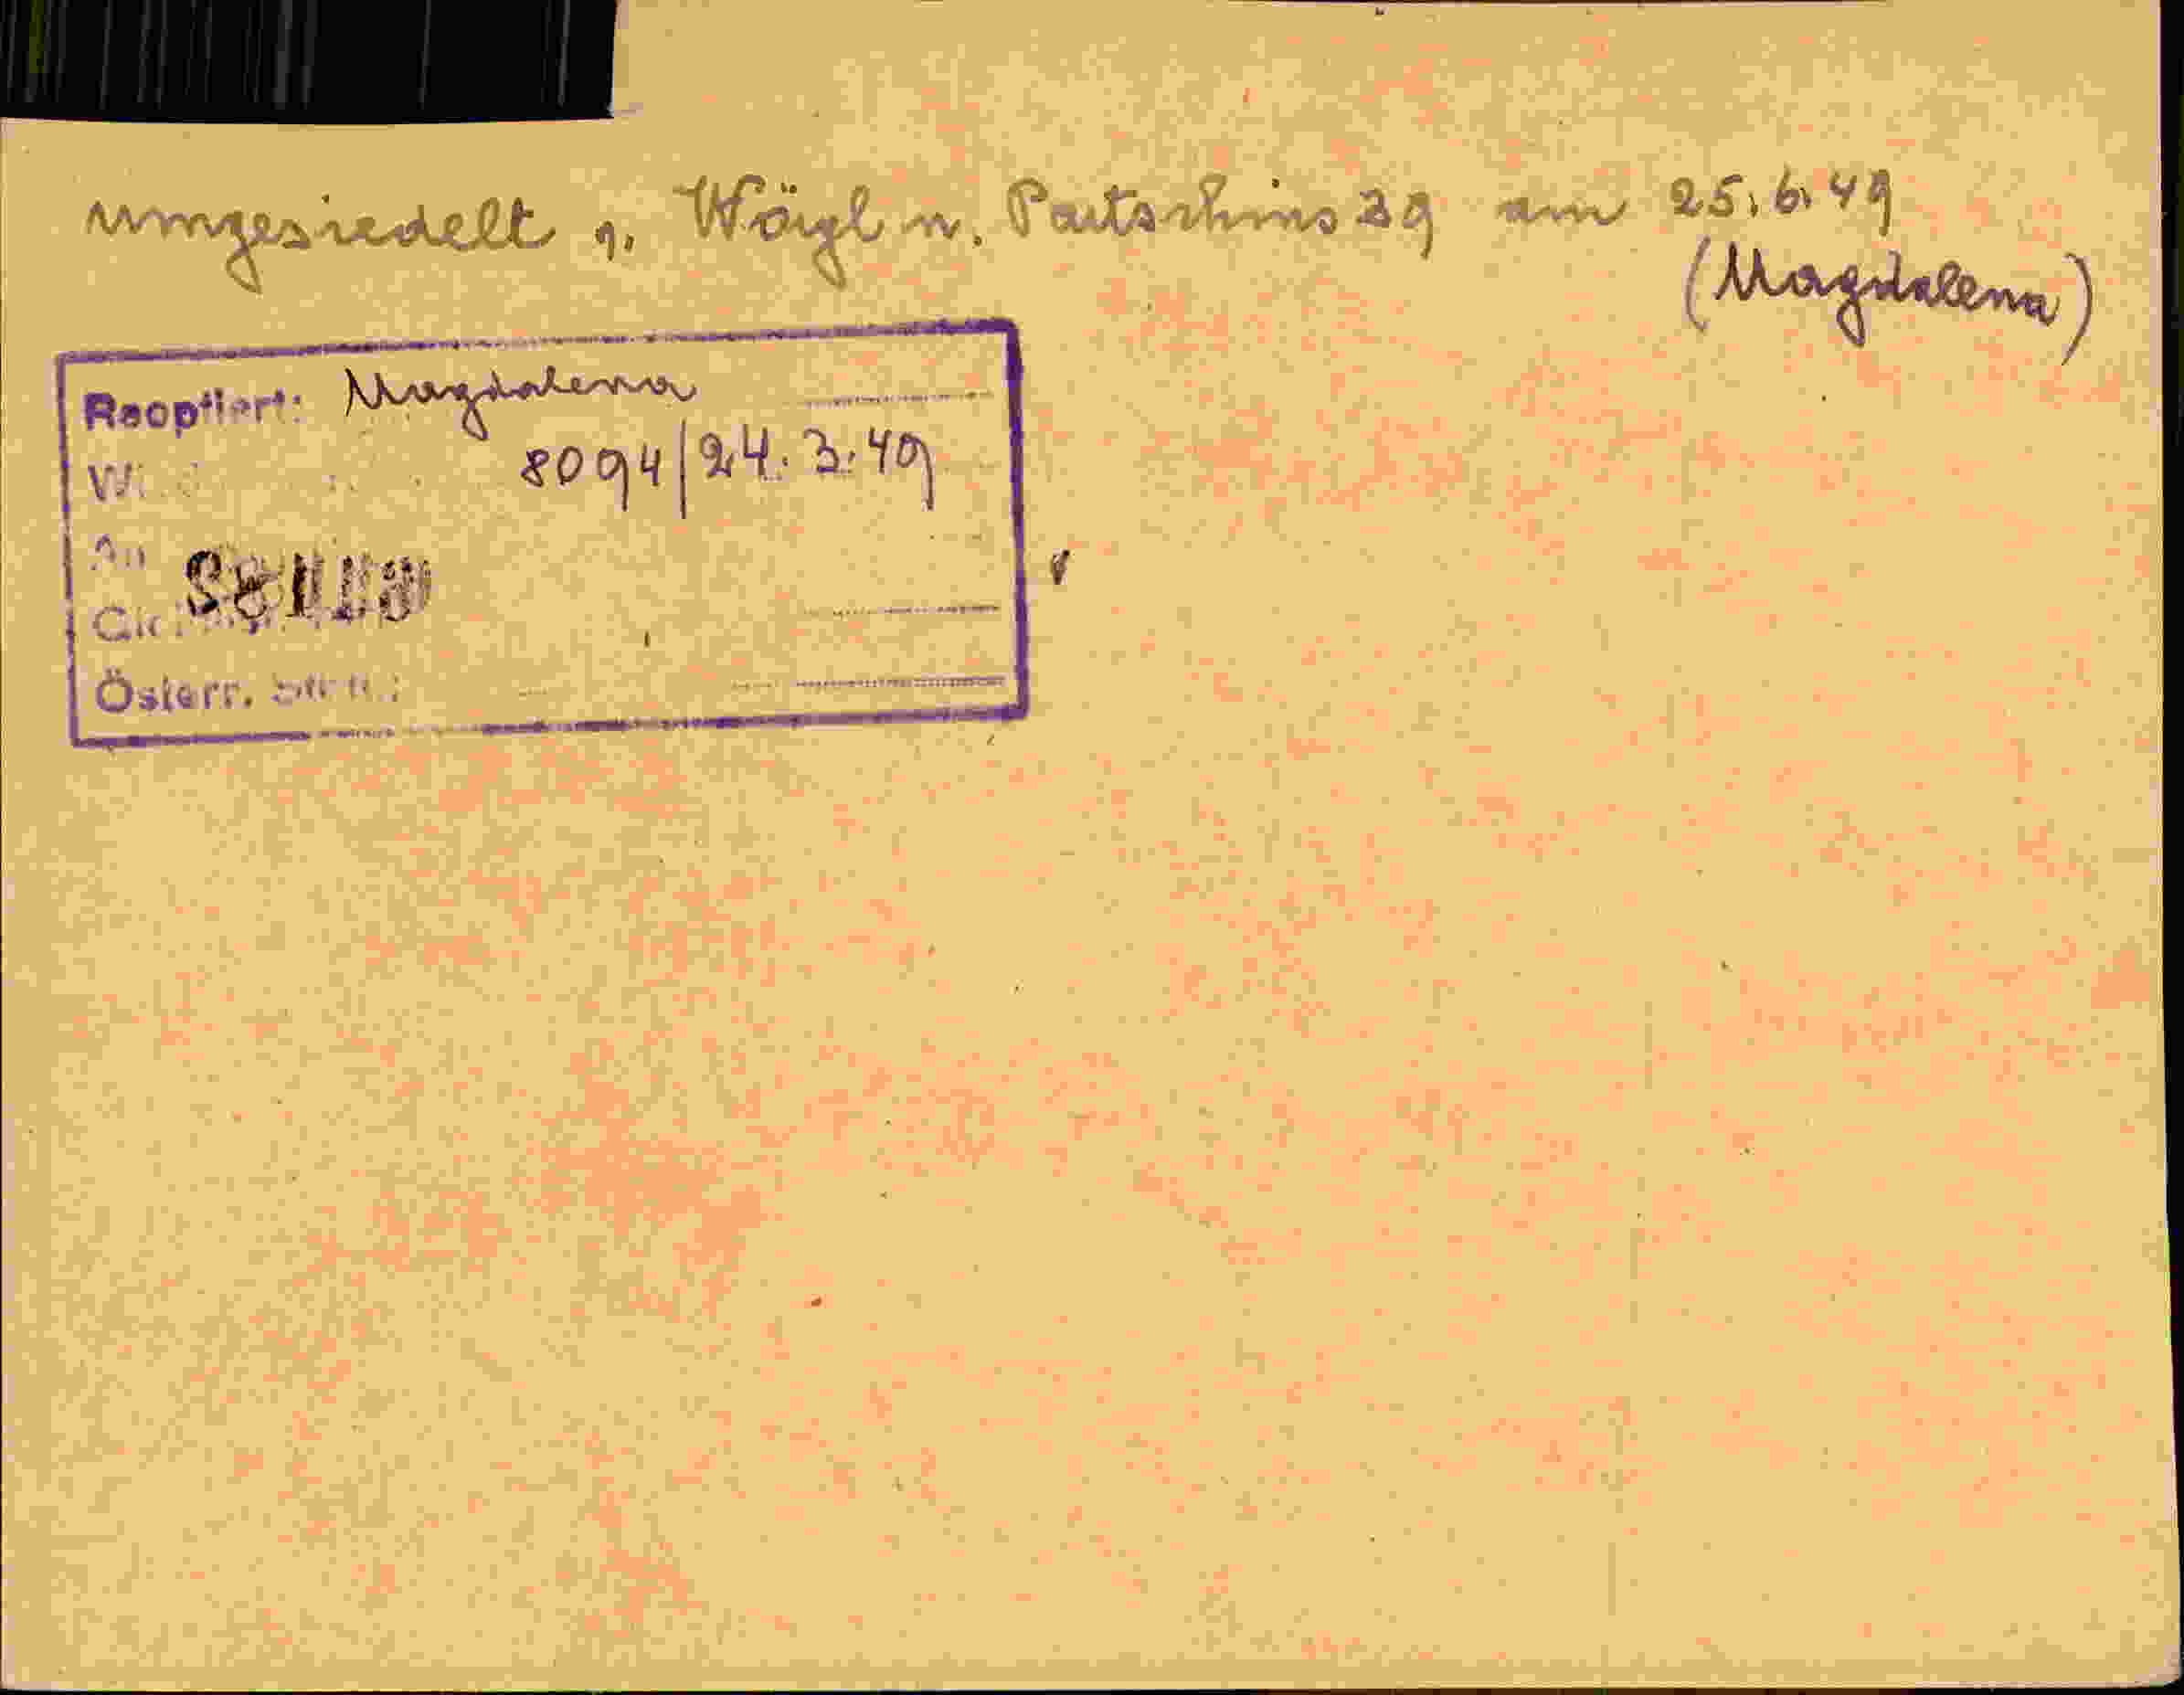 umgesiedelt v. Wörgl n. Partschins 39 am 25.6.49
(Magdalena)
Reoptiert: Magdalena
8094/24.3.49
Österr.